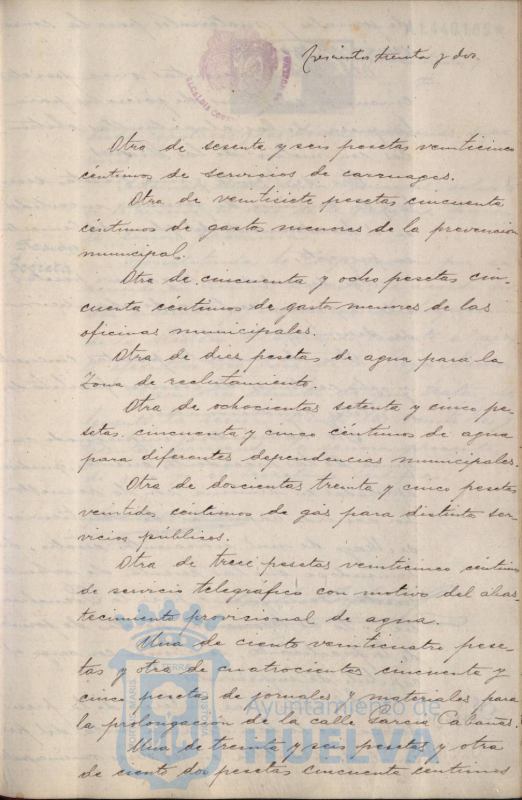 Trescientos treinta y dos.
Otra de sesenta y seis pesetas veinticinco
céntimos de servicios de carruages.
Otra de veintisiete pesetas cincuenta
céntimos de gastos menores de la prevencion
municipal.
Otra de cincuenta y ocho pesetas cin-
cuenta céntimos de gastos menores de las
oficinas municipales.
Otra de diez pesetas de agua para la
Zona de reclutamiento.
Otra de ochocientas setenta y cinco pe-
setas cincuenta y cinco céntimos de agua
para diferentes dependencias municipales.
Otra de doscientas treinta y cinco pesetas
veintidos centimos de gas para distintos ser-
vicios públicos.
Otra de trece pesetas veinticinco céntimos
de servicio telegráfico con motivo del abas-
tecimiento provisional de agua.
Una de ciento veinticuatro pese-
tas y otra de cuatrocientas cincuenta y
cinco pesetas de jornales y materiales para
la prolongación de la calle Garcia Cabañas.
Una de treinta y seis pesetas y otra
de ciento dos pesetas cincuenta centimos
Ayuntamiento de
HUELVA